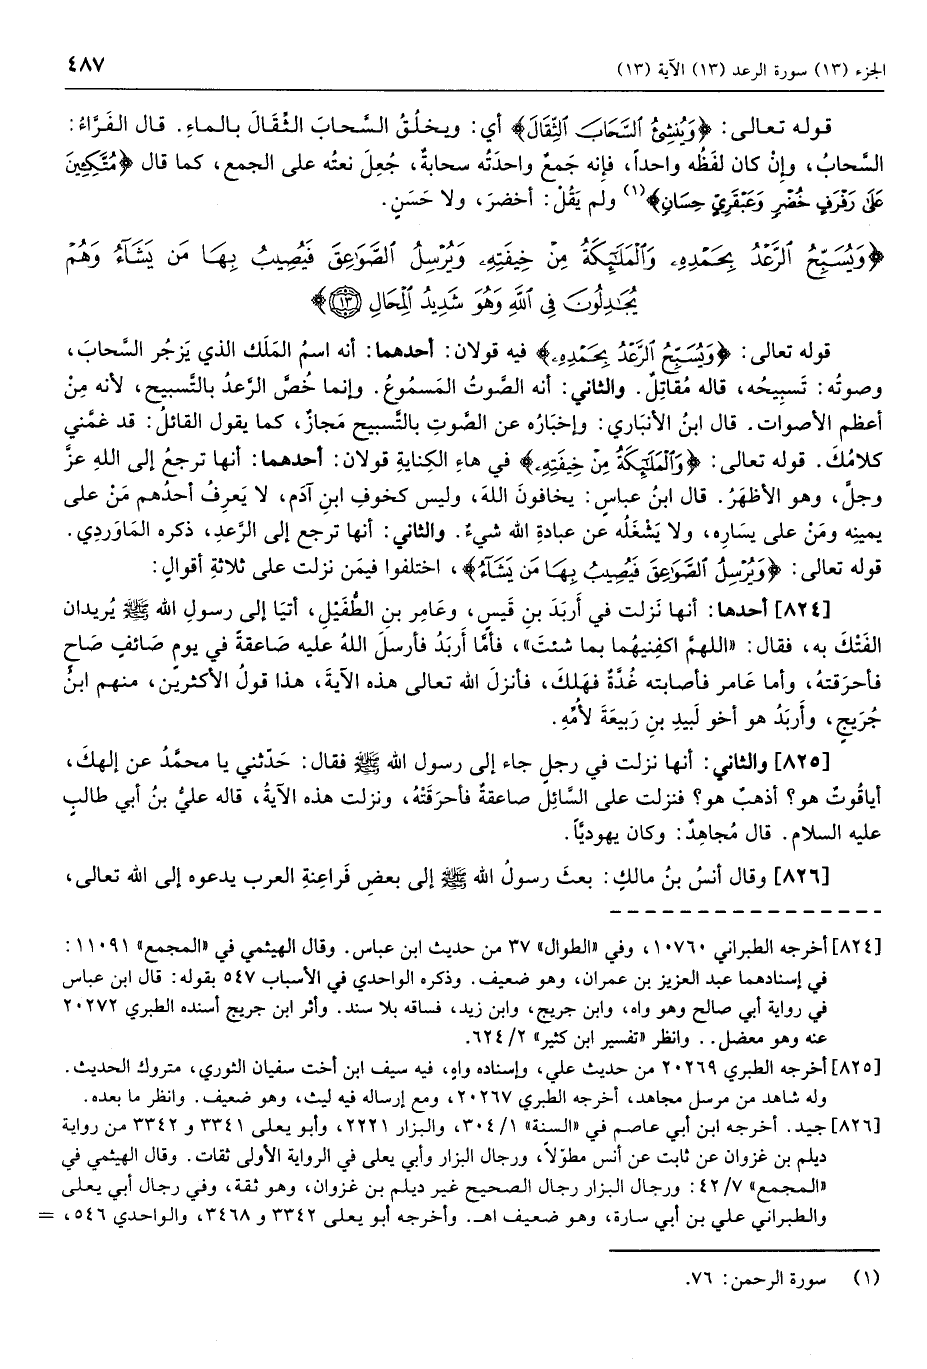 الجزء (١٣) سورة الرعد (١٣) الآية (١٣)
٤٨٧
قوله تعالى: ﴿وَيُنْشِئُ ٱلسَّحَابَ ٱلثِّقَالَ﴾ أي: ويخلُقُ السَّحابَ الثِّقَالَ بالماءِ. قال الفَرَّاءُ:
السَّحابُ، وإِن كان لفظُه واحداً، فإنه جَمعٌ واحدَتُه سحابةٌ، جُعِلَ نعتُه على الجمع، كما قال ﴿مُتَّكِئِينَ
عَلَىٰ رَفْرَفٍ خُضْرٍ وَعَبْقَرِيٍّ حِسَانٍ﴾(١) ولم يَقُلْ: أخضرَ، ولا حَسَنٍ.
﴿وَيُسَبِّحُ ٱلرَّعْدُ بِحَمْدِهِۦ وَٱلْمَلَٰٓئِكَةُ مِنْ خِيفَتِهِۦ وَيُرْسِلُ ٱلصَّوَٰعِقَ فَيُصِيبُ بِهَا مَن يَشَآءُ وَهُمْ
يُجَٰدِلُونَ فِي ٱللَّهِ وَهُوَ شَدِيدُ ٱلْمِحَالِ ١٣﴾
قوله تعالى: ﴿وَيُسَبِّحُ ٱلرَّعْدُ بِحَمْدِهِۦ﴾ فيه قولان: أحدهما: أنه اسمُ المَلَك الذي يَزجُر السَّحابَ،
وصوتُه: تَسبِيحُه، قاله مُقاتِلٌ. والثاني: أنه الصَّوتُ المَسمُوعُ. وإنما خُصَّ الرَّعدُ بالتَّسبيح، لأنه مِنْ
أعظمِ الأصوات. قال ابنُ الأنباري: وإخبَارُه عن الصَّوتِ بالتَّسبيح مَجازٌ، كما يقول القائلُ: قد غمَّني
كلامُكَ. قوله تعالى: ﴿وَٱلْمَلَٰٓئِكَةُ مِنْ خِيفَتِهِۦ﴾ في هاءِ الكِنايةِ قولان: أحدهما: أنها ترجعُ إلى اللهِ عزَّ
وجلَّ، وهو الأظهَرُ. قال ابنُ عباسٍ: يخافون اللهَ، وليس كخوفِ ابنِ آدَم، لا يَعرِفُ أحدُهم مَنْ على
يمينِه ومَنْ على يسَارِه، ولا يَشْغَلُه عن عبادةِ الله شيءٌ. والثاني: أنها ترجع إلى الرَّعدِ، ذكره المَاوَردِي.
قوله تعالى: ﴿وَيُرْسِلُ ٱلصَّوَٰعِقَ فَيُصِيبُ بِهَا مَن يَشَآءُ﴾، اختلفوا فيمَن نزلت على ثلاثةِ أقوالٍ:
[٨٢٤] أحدها: أنها نَزلت في أَربَدَ بنِ قَيسٍ، وعَامِر بنِ الطُّفَيْلِ، أتيَا إلى رسولِ الله ﷺ يُريدان
الفَتْكَ به، فقال: «اللهمَّ اكفِنِيهُما بما شئتَ»، فأمَّا أَربَدُ فأرسلَ اللهُ عليه صَاعقةً في يومٍ صَائفٍ صَاحٍ
فأحرَقتهُ، وأما عَامر فأصابته غُدَّةٌ فهَلكَ، فأنزلَ الله تعالى هذه الآيةَ، هذا قولُ الأكثرين، منهم ابنُ
جُرَيجٍ، وأَربَدُ هو أخو لَبيدِ بنِ رَبيعَةَ لأُمِّهِ.
[٨٢٥] والثاني: أنها نزلت في رجلٍ جاء إلى رسول الله ﷺ فقال: حَدِّثني يا محمَّدُ عن إلهكَ،
أياقُوتٌ هو؟ أذهبٌ هو؟ فنزلت على السَّائِل صاعقةٌ فأحرَقَتْهُ، ونزلت هذه الآيةُ، قاله عليُّ بنُ أبي طالبٍ
عليه السلام. قال مُجاهِدٌ: وكان يهوديَّاً.
[٨٢٦] وقال أنسُ بنُ مالكٍ: بعثَ رسولُ الله ﷺ إلى بعضِ فَراعِنةِ العرب يدعوه إلى الله تعالى،
[٨٢٤] أخرجه الطبراني ١٠٧٦٠، وفي «الطوال» ٣٧ من حديث ابن عباس. وقال الهيثمي في «المجمع» ١١٠٩١:
في إسنادهما عبد العزيز بن عمران، وهو ضعيف. وذكره الواحدي في الأسباب ٥٤٧ بقوله: قال ابن عباس
في رواية أبي صالح وهو واه، وابن جريج، وابن زيد، فساقه بلا سند. وأثر ابن جريج أسنده الطبري ٢٠٢٧٢
عنه وهو معضل.. وانظر «تفسير ابن كثير» ٢/ ٦٢٤.
[٨٢٥] أخرجه الطبري ٢٠٢٦٩ من حديث علي، وإسناده واهٍ، فيه سيف ابن أخت سفيان الثوري، متروك الحديث.
وله شاهد من مرسل مجاهد، أخرجه الطبري ٢٠٢٦٧، ومع إرساله فيه ليث، وهو ضعيف. وانظر ما بعده.
[٨٢٦] جيد. أخرجه ابن أبي عاصم في «السنة» ١/ ٣٠٤، والبزار ٢٢٢١، وأبو يعلى ٣٣٤١ و ٣٣٤٢ من رواية
ديلم بن غزوان عن ثابت عن أنس مطوّلاً، ورجال البزار وأبي يعلى في الرواية الأولى ثقات. وقال الهيثمي في
«المجمع» ٤٢/٧: ورجال البزار رجال الصحيح غير ديلم بن غزوان، وهو ثقة، وفي رجال أبي يعلى
والطبراني علي بن أبي سارة، وهو ضعيف اهـ. وأخرجه أبو يعلى ٣٣٤٢ و ٣٤٦٨، والواحدي ٥٤٦، =
(١) سورة الرحمن: ٧٦.